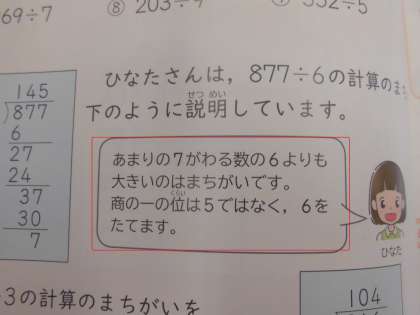 69÷7
⑧ 203÷9
552÷5
ひなたさんは，877÷6の計算のま
下のように説明しています。
せつ めい
145
877
6
27
24
37
30
7
あまりの7がわる数の6よりも
大きいのはまちがいです。
商の一の位は5ではなく，6を
くらい
たてます。
ひなた
3の計算のまちがいを
104